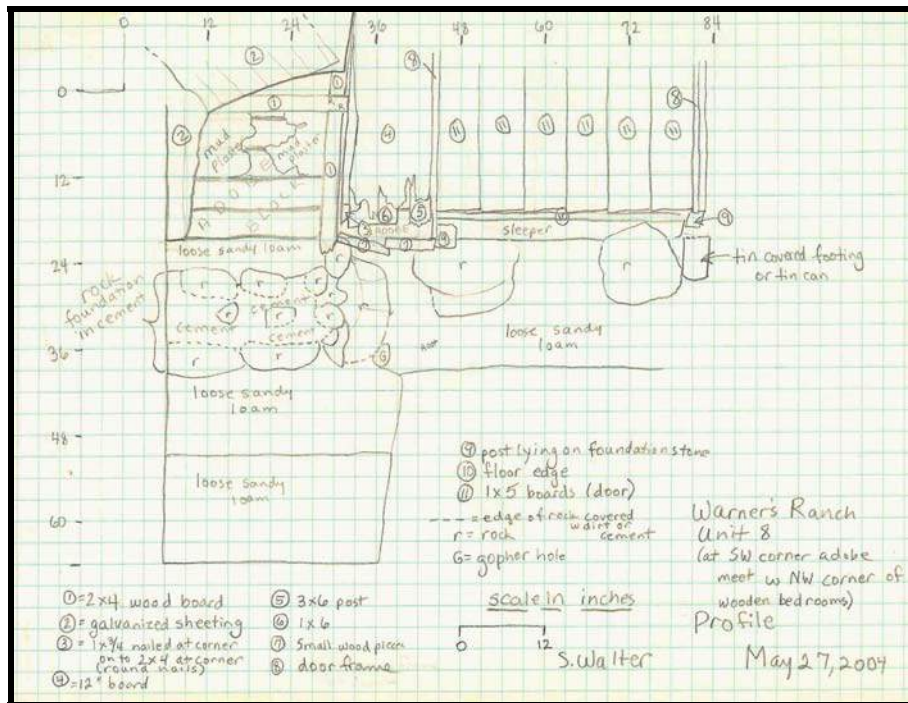 0 12 24 36 48 60 72 84
②
⑧
①
0
①
⑧
②
mud
plaster
mud
plaster
①
④
⑪ ⑪ ⑪ ⑪ ⑪ ⑪
12
ADOBE
BLOCK
⑥ ⑤
③
⑩
⑨
sleeper
⑦
loose sandy loam
24
r
r
r
tin coverd footing
or tin can
rock
foundation
in cement
r r r
cement
r
r
r r r
cement
cement
r r
36
G
loose sandy
loam
loose sandy
loam
48
loose sandy
loam
60
⑨ post lying on foundation stone
⑩ floor edge
⑪ 1x5 boards (door)
---- = edge of rock covered
w dirt or
cement
r = rock
G = gopher hole
Warner's Ranch
Unit 8
(at SW corner adobe
meet w NW corner of
wooden bedrooms)
Profile
May 27, 2004
① = 2x4 wood board
② = galvanized sheeting
③ = 1x3/4 nailed at corner
on to 2x4 at corner
(round nails)
④ = 12" board
⑤ 3x6 post
⑥ 1x6
⑦ Small wood pieces
⑧ door frame
scale in inches
0 12
S. Walter